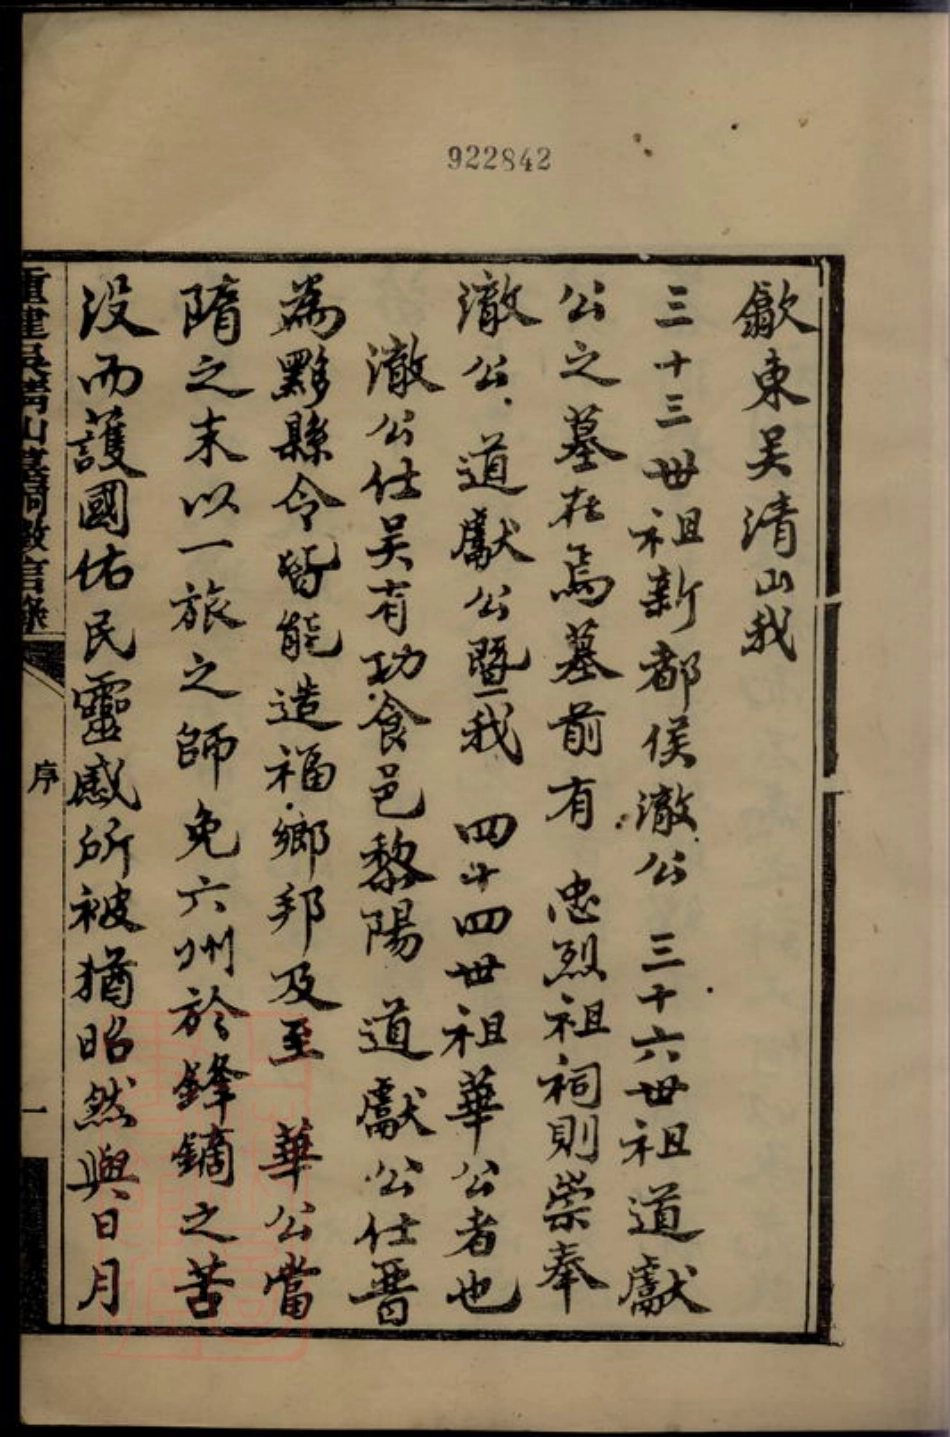 922842
歙東吴清山我
三十三世祖新都侯澈公 三十六世祖道獻
公之墓在焉墓前有 忠烈祖祠則崇奉
澈公道獻公暨我 四十四世祖華公者也
澈公仕吴有功食邑黎陽 道獻公仕晋
為黟縣令皆能造福鄉邦及至 華公當
隋之末以一旅之師免六州於鋒鏑之苦
没而護國佑民靈感所被猶昭然與日月
重建吳清山墓祠徵信錄
序
一